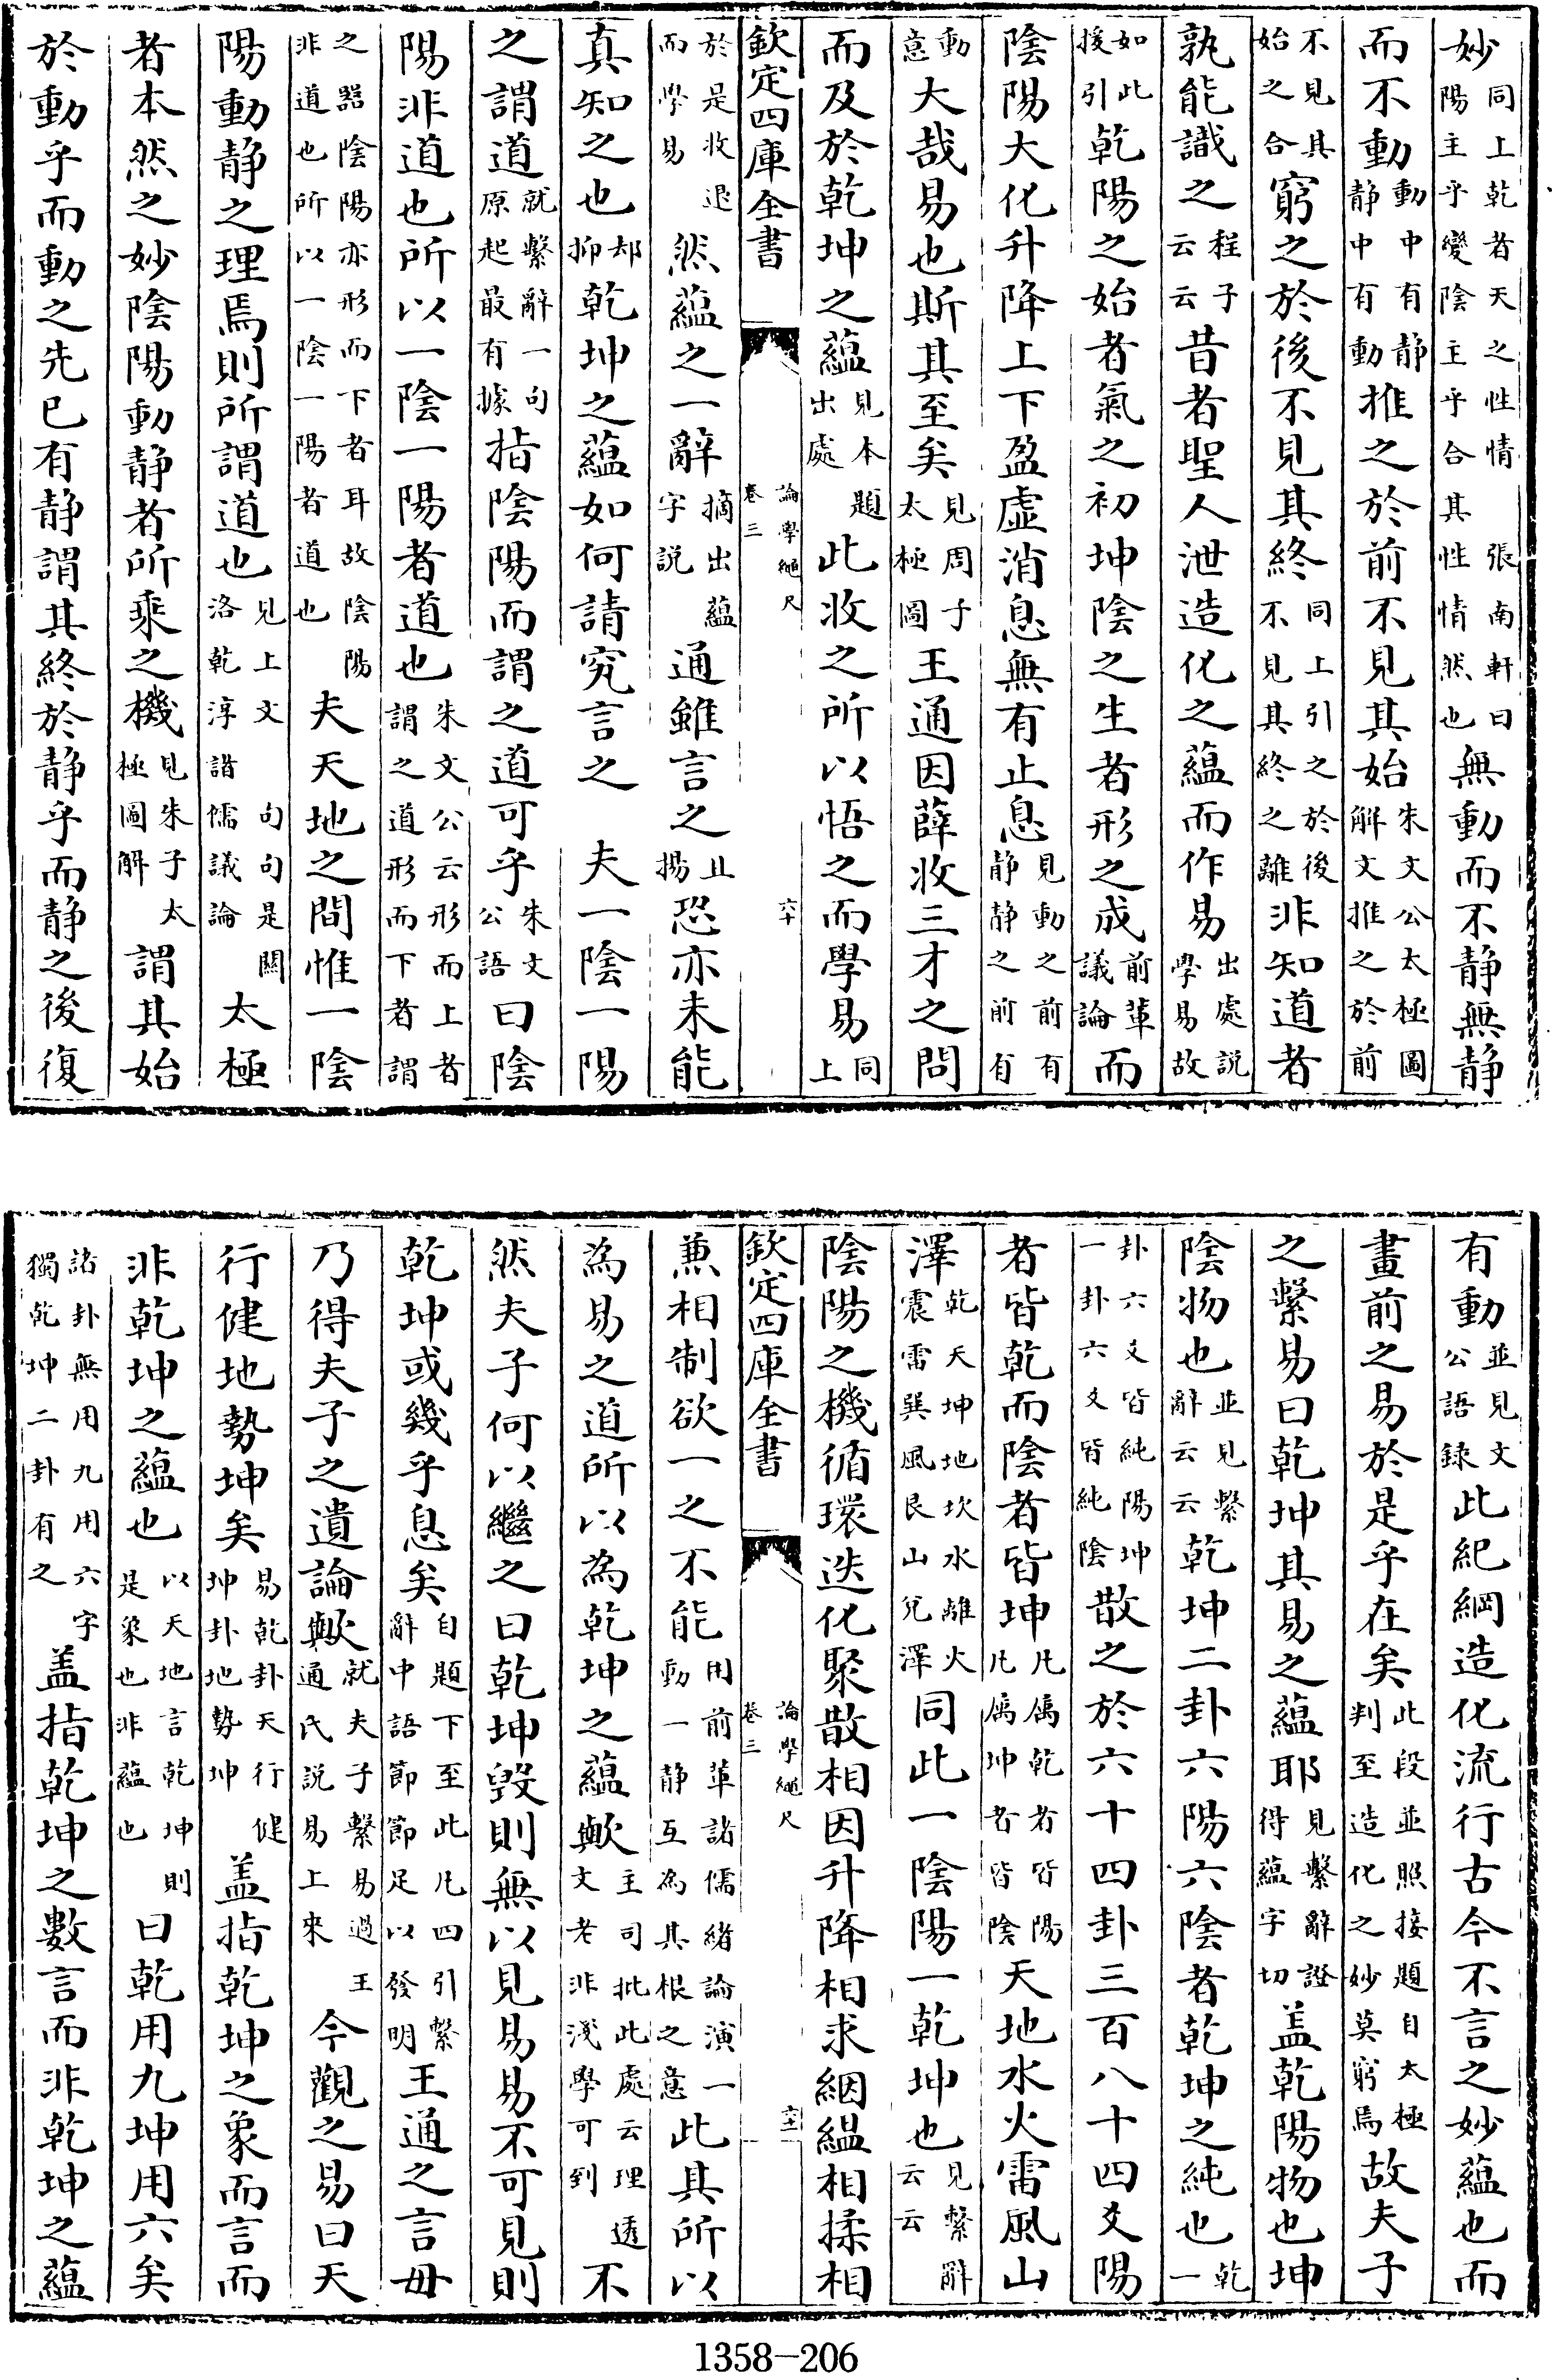 妙同上乾者天之性情張南軒曰陽主乎變陰主乎合其性情然也無動而不静無静
而不動動中有静静中有動推之於前不見其始朱文公太極圖解文推之於前
不見其始之合窮之於後不見其終同上引之於後不見其終之離非知道者
孰能識之程子云云昔者聖人泄造化之蘊而作易出處説學易故
如此援引乾陽之始者氣之初坤陰之生者形之成前輩議論而
陰陽大化升降上下盈虛消息無有止息見動之前有静静之前有
動意大哉易也斯其至矣見周子太極圖王通因薛收三才之問
而及於乾坤之蘊見本題出處此收之所以悟之而學易同上
欽定四庫全書 論學繩尺卷三 六十
於是收退而學易然蘊之一辭摘出蘊字説通雖言之且揚恐亦未能
真知之也却抑乾坤之蘊如何請究言之 夫一陰一陽
之謂道就繫辭一句原起最有據指陰陽而謂之道可乎朱文公語曰陰
陽非道也所以一陰一陽者道也朱文公云形而上者謂之道形而下者謂
之器陰陽亦形而下者耳故陰陽非道也所以一陰一陽者道也夫天地之間惟一陰
陽動静之理焉則所謂道也見上文句句是關洛乾淳諸儒議論太極
者本然之妙陰陽動静者所乘之機見朱子太極圖解謂其始
於動乎而動之先已有静謂其終於静乎而静之後復
有動並見文公語録此紀綱造化流行古今不言之妙蘊也而
畫前之易於是乎在矣此段並照接題自太極判至造化之妙莫窮焉故夫子
之繫易曰乾坤其易之蘊耶見繫辭證得蘊字切盖乾陽物也坤
陰物也並見繫辭云云乾坤二卦六陽六陰者乾坤之純也乾一
卦六爻皆純陽坤一卦六爻皆純陰散之於六十四卦三百八十四爻陽
者皆乾而陰者皆坤凡屬乾者皆陽凡屬坤者皆陰天地水火雷風山
澤乾天坤地坎水離火震雷巽風艮山兌澤同此一陰陽一乾坤也見繫辭云云
陰陽之機循環迭化聚散相因升降相求絪緼相揉相
欽定四庫全書 論學繩尺卷三 六十一
兼相制欲一之不能用前輩諸儒緒論演一動一静互為其根之意此其所以
為易之道所以為乾坤之蘊歟主司批此處云理透文老非淺學可到不
然夫子何以繼之曰乾坤毁則無以見易易不可見則
乾坤或幾乎息矣自題下至此凡四引繫辭中語節節足以發明王通之言毋
乃得夫子之遺論歟就夫子繫易過王通氏説易上來今觀之易曰天
行健地勢坤矣易乾卦天行健坤卦地勢坤盖指乾坤之象而言而
非乾坤之蘊也以天地言乾坤則是象也非蘊也曰乾用九坤用六矣
諸卦無用九用六字獨乾坤二卦有之盖指乾坤之數言而非乾坤之蘊
1358-206